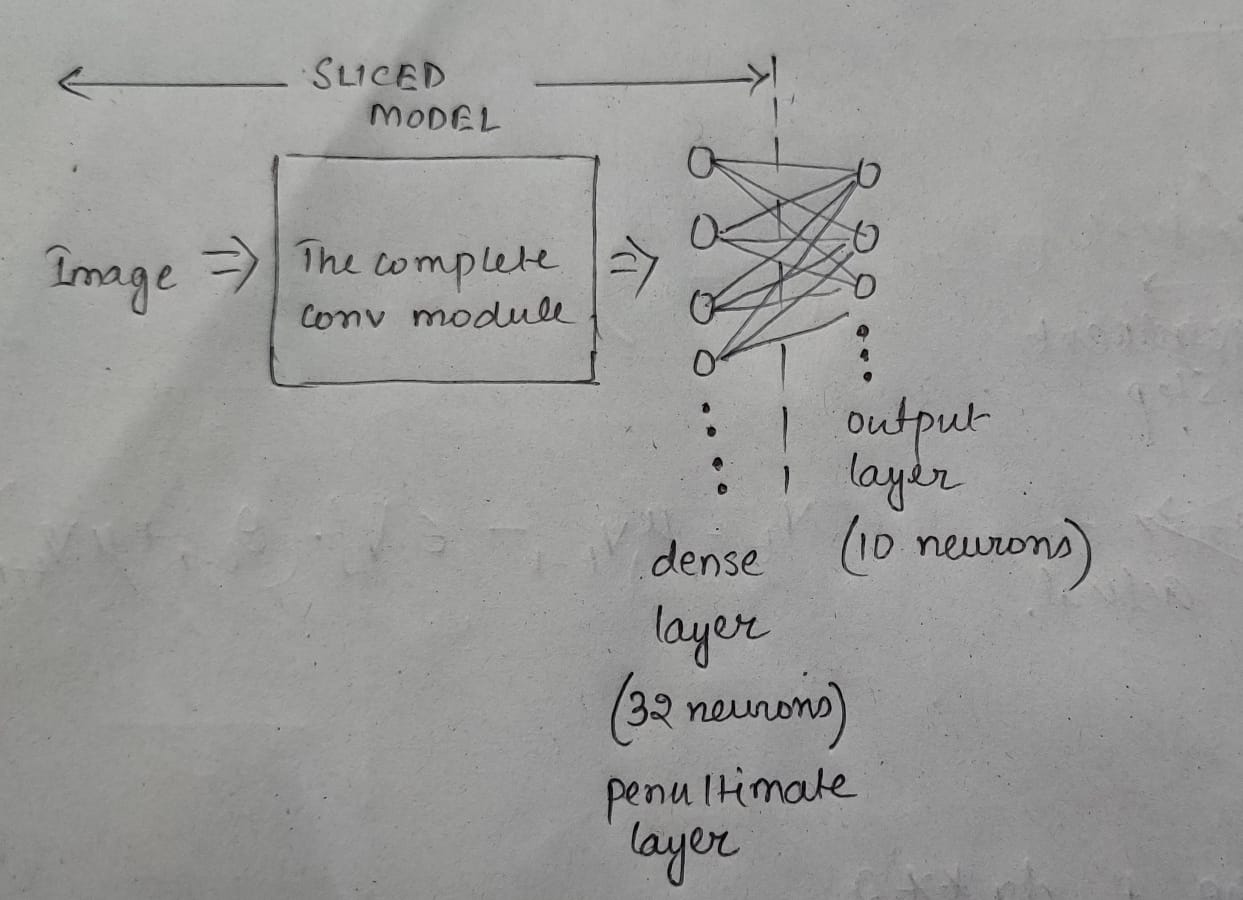 SLICED
MODEL
Image ⇒ The complete ⇒
conv module
output
layer
(10 neurons)
dense
layer
(32 neurons)
penultimate
layer